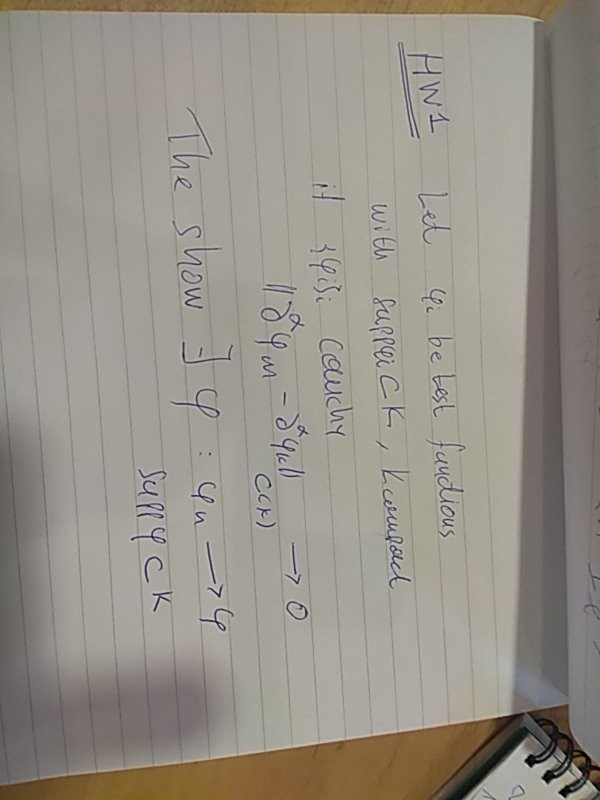 HW1 Let φi be test functions
with suppφi ⊂ K, K compact
if {φi}i cauchy
‖∂^α φm - ∂^α φk‖ C(K) → 0
The show ∃ φ : φn → φ
supp φ ⊂ K